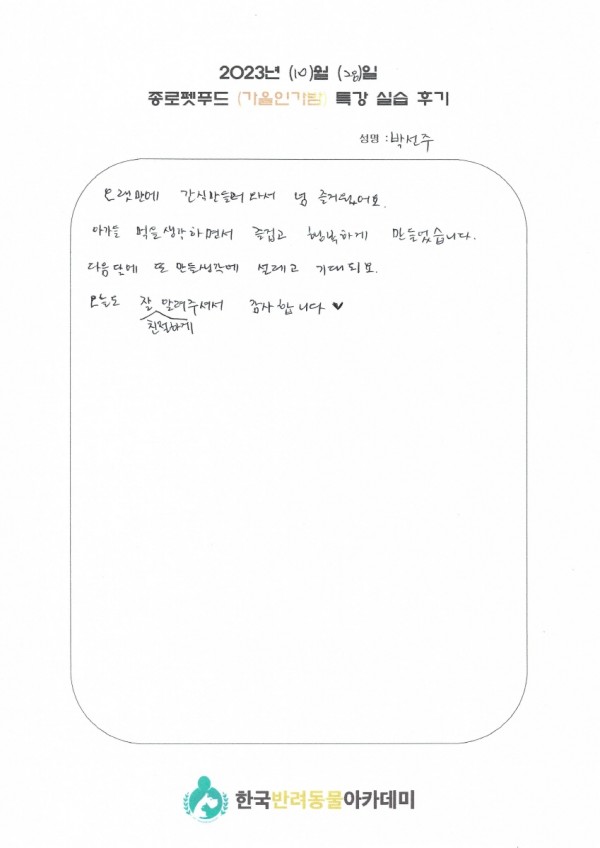 2023년 (10)월 (28)일
종로펫푸드 (가을인가밤) 특강 실습 후기
성명 : 박선주
오랫만에 간식만들러 와서 넘 즐거웠어요.
아가들 먹을생각하면서 즐겁고 행복하게 만들었습니다.
다음달에 또 만들생각에 설레고 기대되요.
오늘도 잘 알려주셔서 감사합니다 ♥
친절하게
한국반려동물아카데미